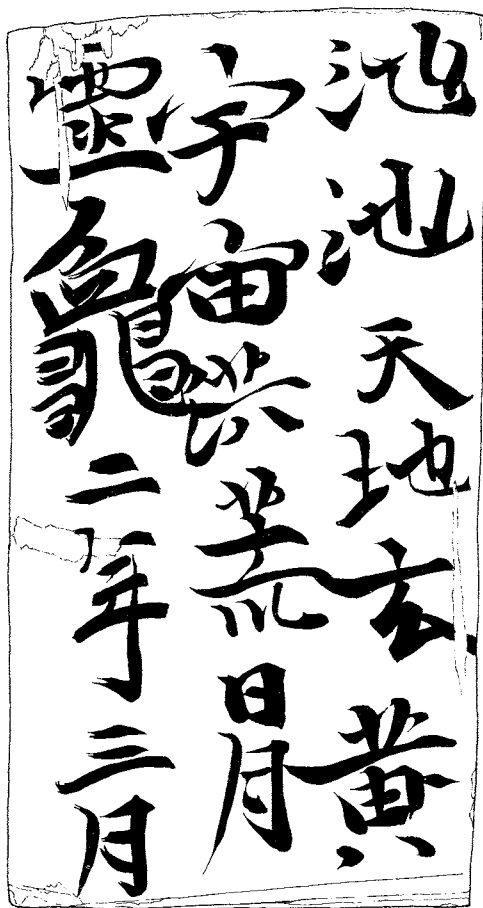 池池天地玄黄
宇宙洪荒日月
靈龜二年三月